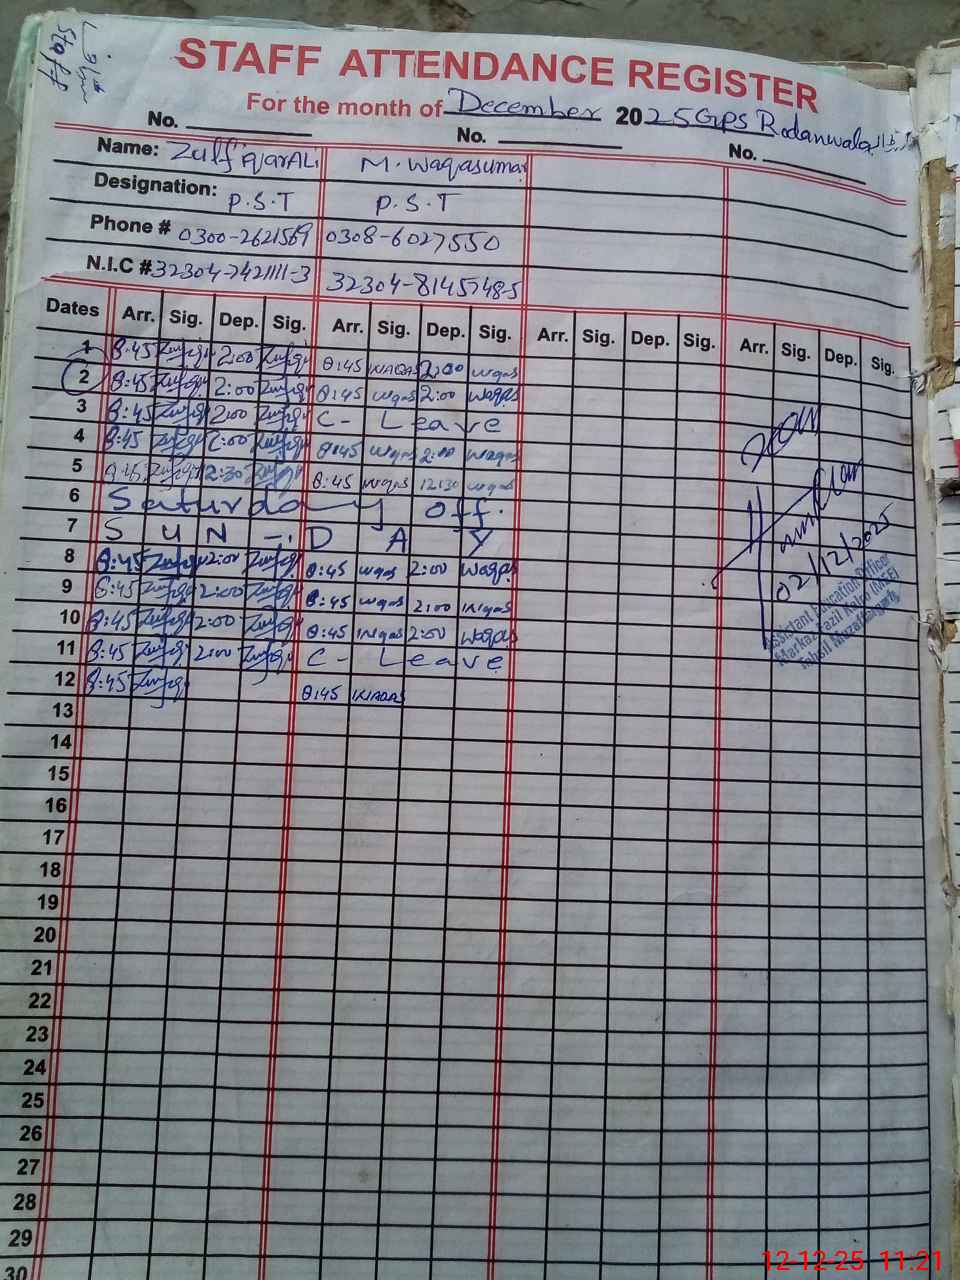 Staff
STAFF ATTENDANCE REGISTER
For the month of December 2025 GPS Rodanwala
No. No. No.
Name: Zulfiqar ALi M. Waqas umar
Designation: P.S.T P.S.T
Phone # 0300-2621569 0308-6027550
N.I.C # 32304-7421111-3 32304-8145748-5
Dates Arr. Sig. Dep. Sig. Arr. Sig. Dep. Sig. Arr. Sig. Dep. Sig. Arr. Sig. Dep. Sig.
1 8:45 2:00 8:45 WAQAS 2:00 wqas
2 8:45 2:00 8:45 wqas 2:00 waqas
3 8:45 2:00 C- Leave
4 8:45 2:00 8:45 wqas 2:00 waqas
5 8:45 12:30 8:45 wqas 12:30 wqas
6 Saturday off.
7 S U N - D A Y
8 8:45 2:00 8:45 wqas 2:00 waqas
9 8:45 2:00 8:45 wqas 2:00 wqas
10 8:45 2:00 8:45 wqas 2:00 waqas
11 8:45 2:00 C- Leave
12 8:45 8:45 WAQAS
02/12/2025
Assistant Education Officer
Markaz Fazil Kalro (NSE)
Tehsil Muzaffargarh
13
14
15
16
17
18
19
20
21
22
23
24
25
26
27
28
29
30
12-12-25 11:21